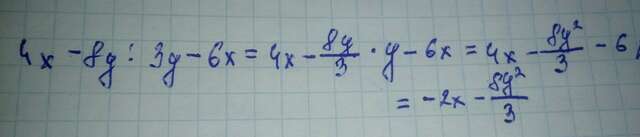 4x - 8y : 3y - 6x = 4x - 8y/3 · y - 6x = 4x - 8y²/3 - 6
= -2x - 8y²/3